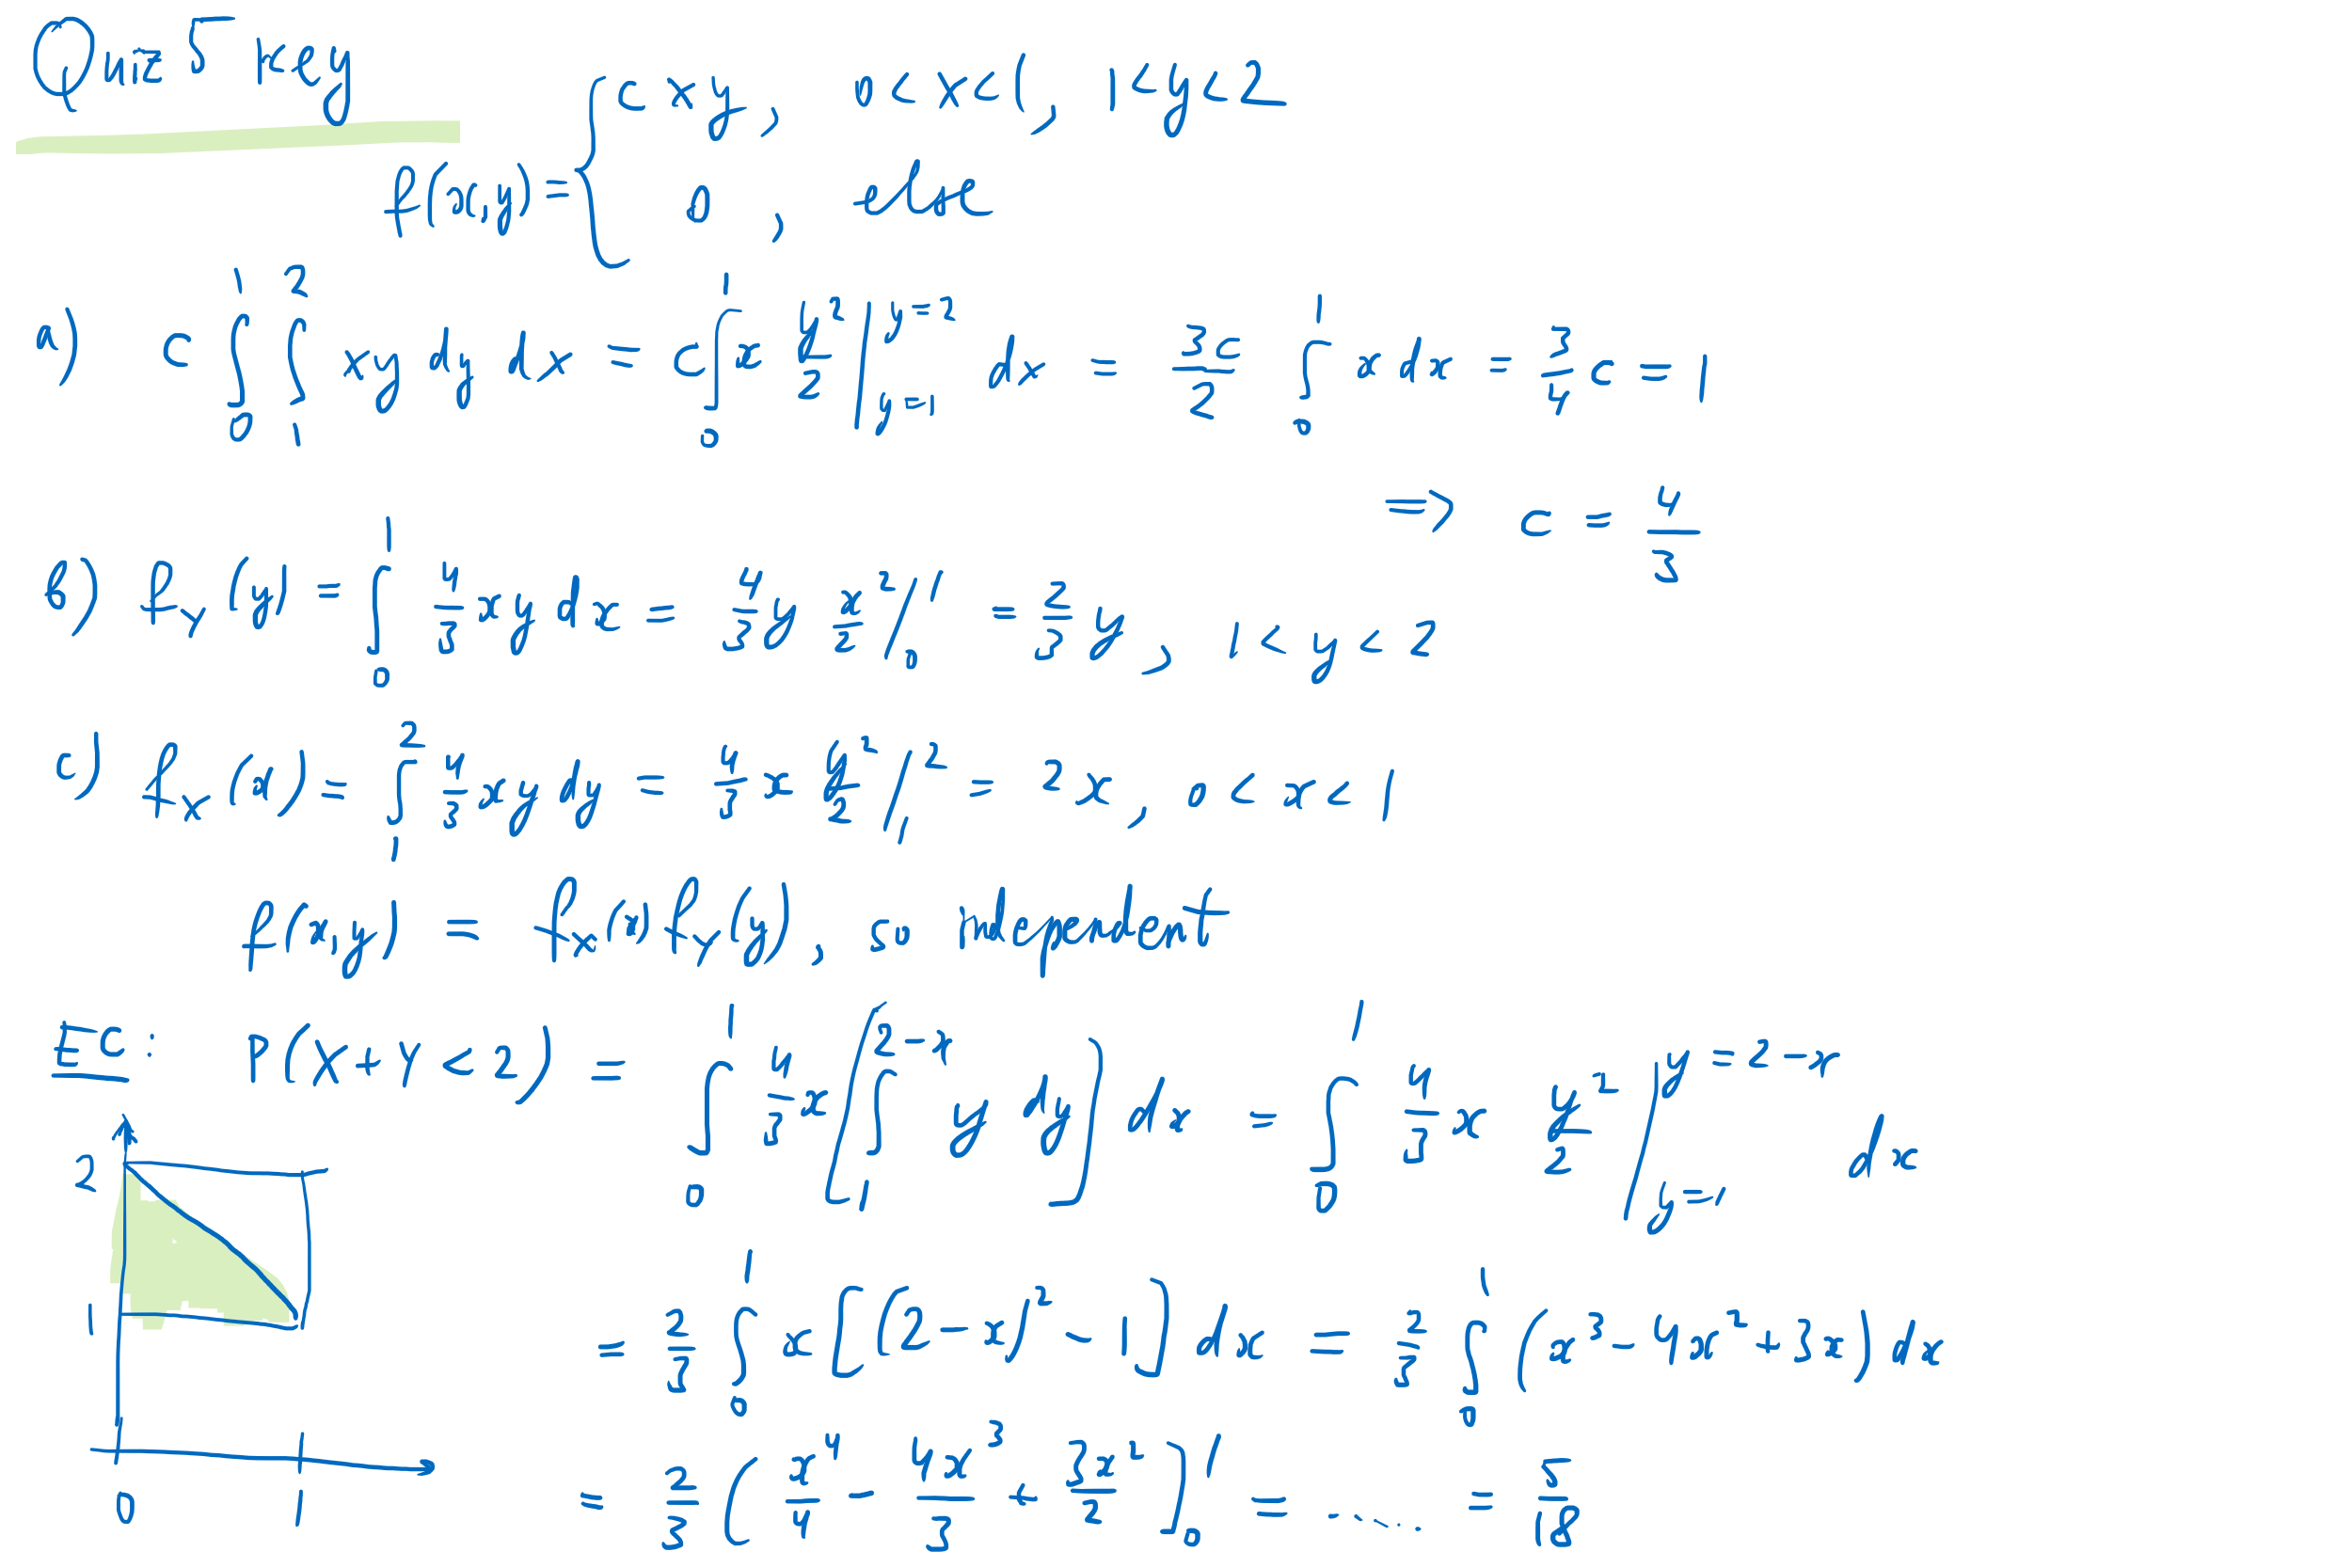 Quiz 5 key
f(x,y) = { c xy, 0 < x < 1, 1 < y < 2
0 , else
a) c ∫₀¹ ∫₁² xy dy dx = c ∫₀¹ x y²/2 |_{y=1}^{y=2} dx = 3c/2 ∫₀¹ x dx = 3/4 c = 1
⟹ c = 4/3
b) f_Y(y) = ∫₀¹ 4/3 xy dx = 4/3 y x²/2 |₀¹ = 2/3 y, 1 < y < 2
c) f_X(x) = ∫₁² 4/3 xy dy = 4/3 x y²/2 |₁² = 2x, 0 < x < 1
f(x,y) = f_X(x) f_Y(y), so independent
EC: P(X+Y<2) = ∫₀¹ 4/3 x [∫₁^{2-x} y dy] dx = ∫₀¹ 4/3 x y²/2 |_{y=1}^{y=2-x} dx
2
1
= 2/3 ∫₀¹ x [(2-x)² - 1] dx = 2/3 ∫₀¹ (x³ - 4x² + 3x) dx
= 2/3 ( x⁴/4 - 4x³/3 + 3x²/2 ]₀¹ = ..... = 5/18
0 1